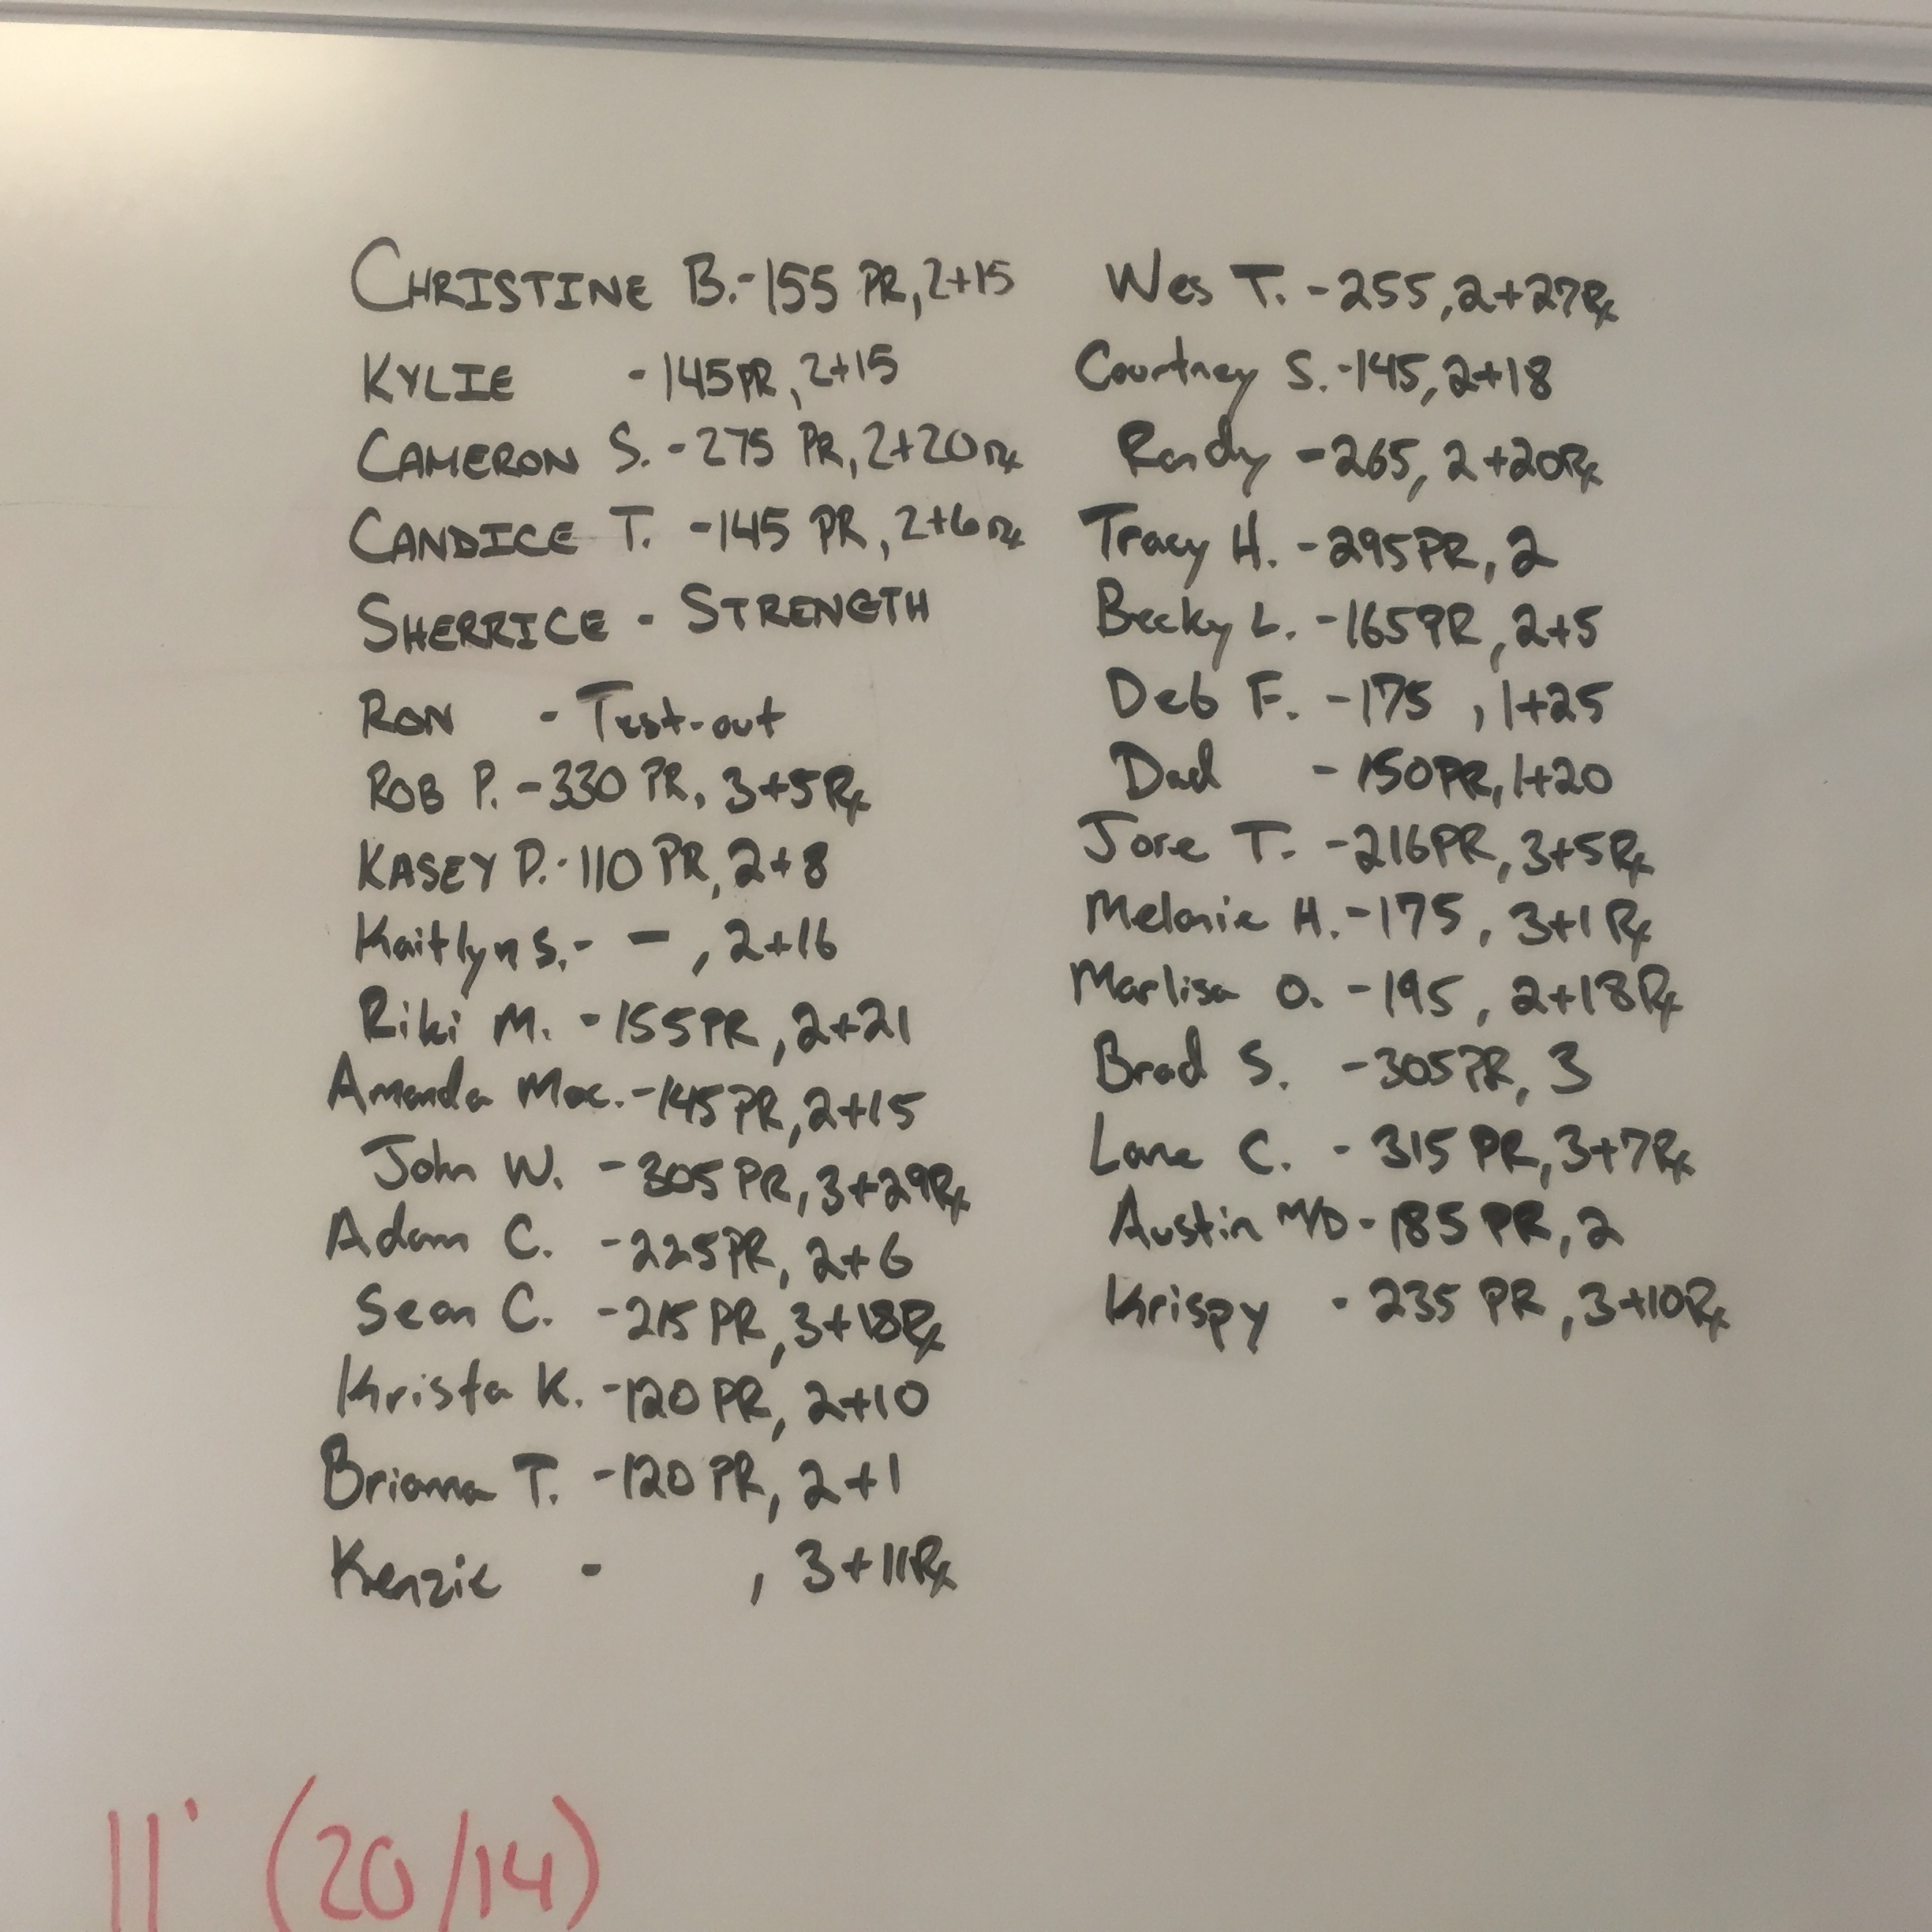 CHRISTINE B.-155 PR, 2+15
KYLIE - 145PR, 2+15
CAMERON S. - 275 PR, 2+20 Rx
CANDICE T. - 145 PR, 2+6 Rx
SHERRICE - STRENGTH
RON - Test-out
ROB P. - 330 PR, 3+5Rx
KASEY P. - 110 PR, 2+8
Kaitlyn S. - -, 2+16
Riki M. - 155PR, 2+21
Amanda Mac. - 145PR, 2+15
John W. - 305 PR, 3+29Rx
Adam C. - 225PR, 2+6
Sean C. - 215 PR, 3+18Rx
Krista K. - 120 PR, 2+10
Brianna T. - 120 PR, 2+1
Kenzie - , 3+11Rx
Wes T. - 255, 2+27Rx
Courtney S. - 145, 2+18
Randy - 265, 2+20Rx
Tracy H. - 295PR, 2
Becky L. - 165PR, 2+5
Deb F. - 175, 1+25
Dad - 150PR, 1+20
Jose T. - 216PR, 3+5Rx
Melanie H. - 175, 3+1Rx
Marlisa O. - 195, 2+18Rx
Brad S. - 305PR, 3
Lane C. - 315 PR, 3+7Rx
Austin M/D - 185 PR, 2
Krispy - 235 PR, 3+10Rx
11' (20/14)